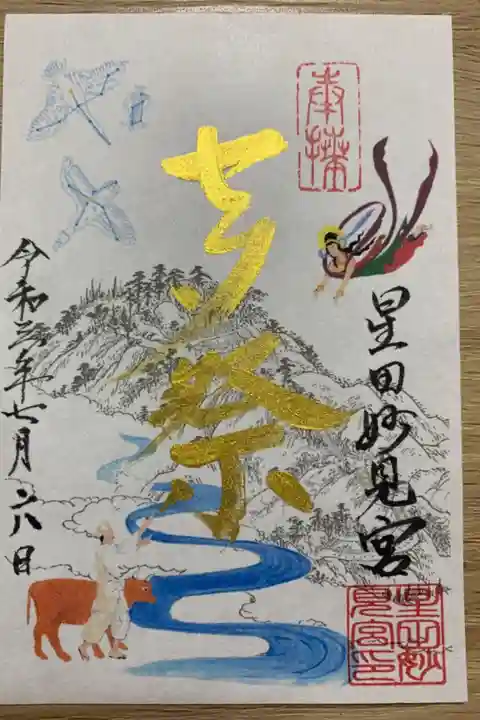 奉拝
星田妙見宮
七夕祭
令和三年七月六日
星田妙
見宮印